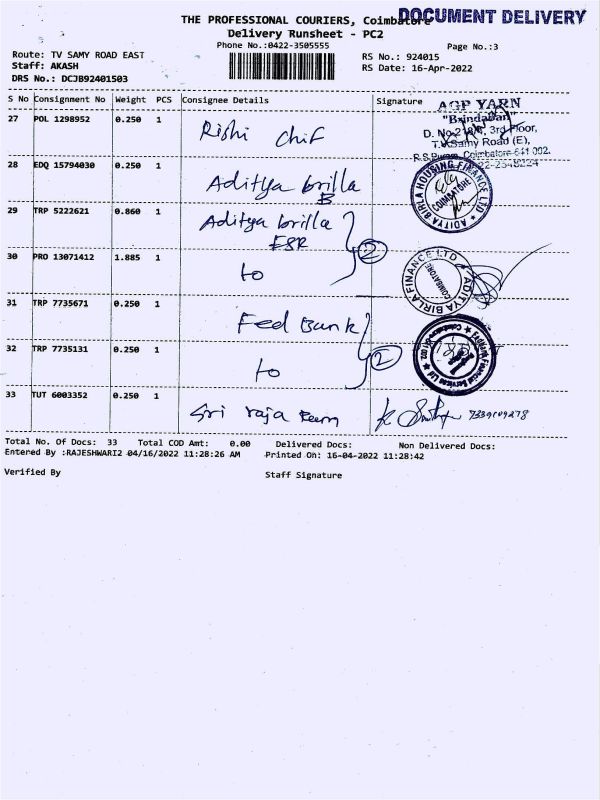 THE PROFESSIONAL COURIERS, Coimbatore
DOCUMENT DELIVERY
Delivery Runsheet - PC2
Phone No.:0422-3505555
Page No.:3
Route: TV SAMY ROAD EAST
Staff: AKASH
DRS No.: DCJB92401503
RS No.: 924015
RS Date: 16-Apr-2022
S No Consignment No Weight PCS Consignee Details Signature
27 POL 1298952 0.250 1 Rishi Chif
AGP YARN
"Brindaban"
D. No. 218/1, 3rd Floor,
T.V.Samy Road (E),
R.S.Puram, Coimbatore-641 002.
28 EDQ 15794030 0.250 1 Aditya brilla
B
ADITYA BIRLA HOUSING FINANCE LTD
COIMBATORE
29 TRP 5222621 0.860 1 Aditya brilla
2
30 PRO 13071412 1.885 1 to
ADITYA BIRLA FINANCE LTD
COIMBATORE
31 TRP 7735671 0.250 1 Fed Bank
2
32 TRP 7735131 0.250 1 to
Fedbank Financial Services Ltd
33 TUT 6003352 0.250 1 Sri raja
Total No. Of Docs: 33 Total COD Amt: 0.00 Delivered Docs: Non Delivered Docs:
Entered By :RAJESHWARI2 04/16/2022 11:28:26 AM Printed On: 16-04-2022 11:28:42
Verified By Staff Signature